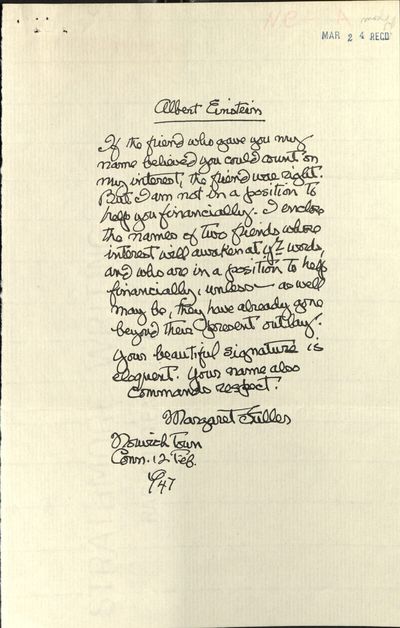 MAR 2 4 RECD
Albert Einstein
If the friend who gave you my
name believed you could count on
my interest, the friend was right.
But I am not in a position to
help you financially. I enclose
the names of two friends whose
interest will awaken at y'r words
and who are in a position to help
financially, unless — as well
may be, they have already gone
beyond their present outlay.
Your beautiful signature is
eloquent. Your name also
commands respect!
Margaret Fuller
Norwich Town
Conn. 12 Feb.
47